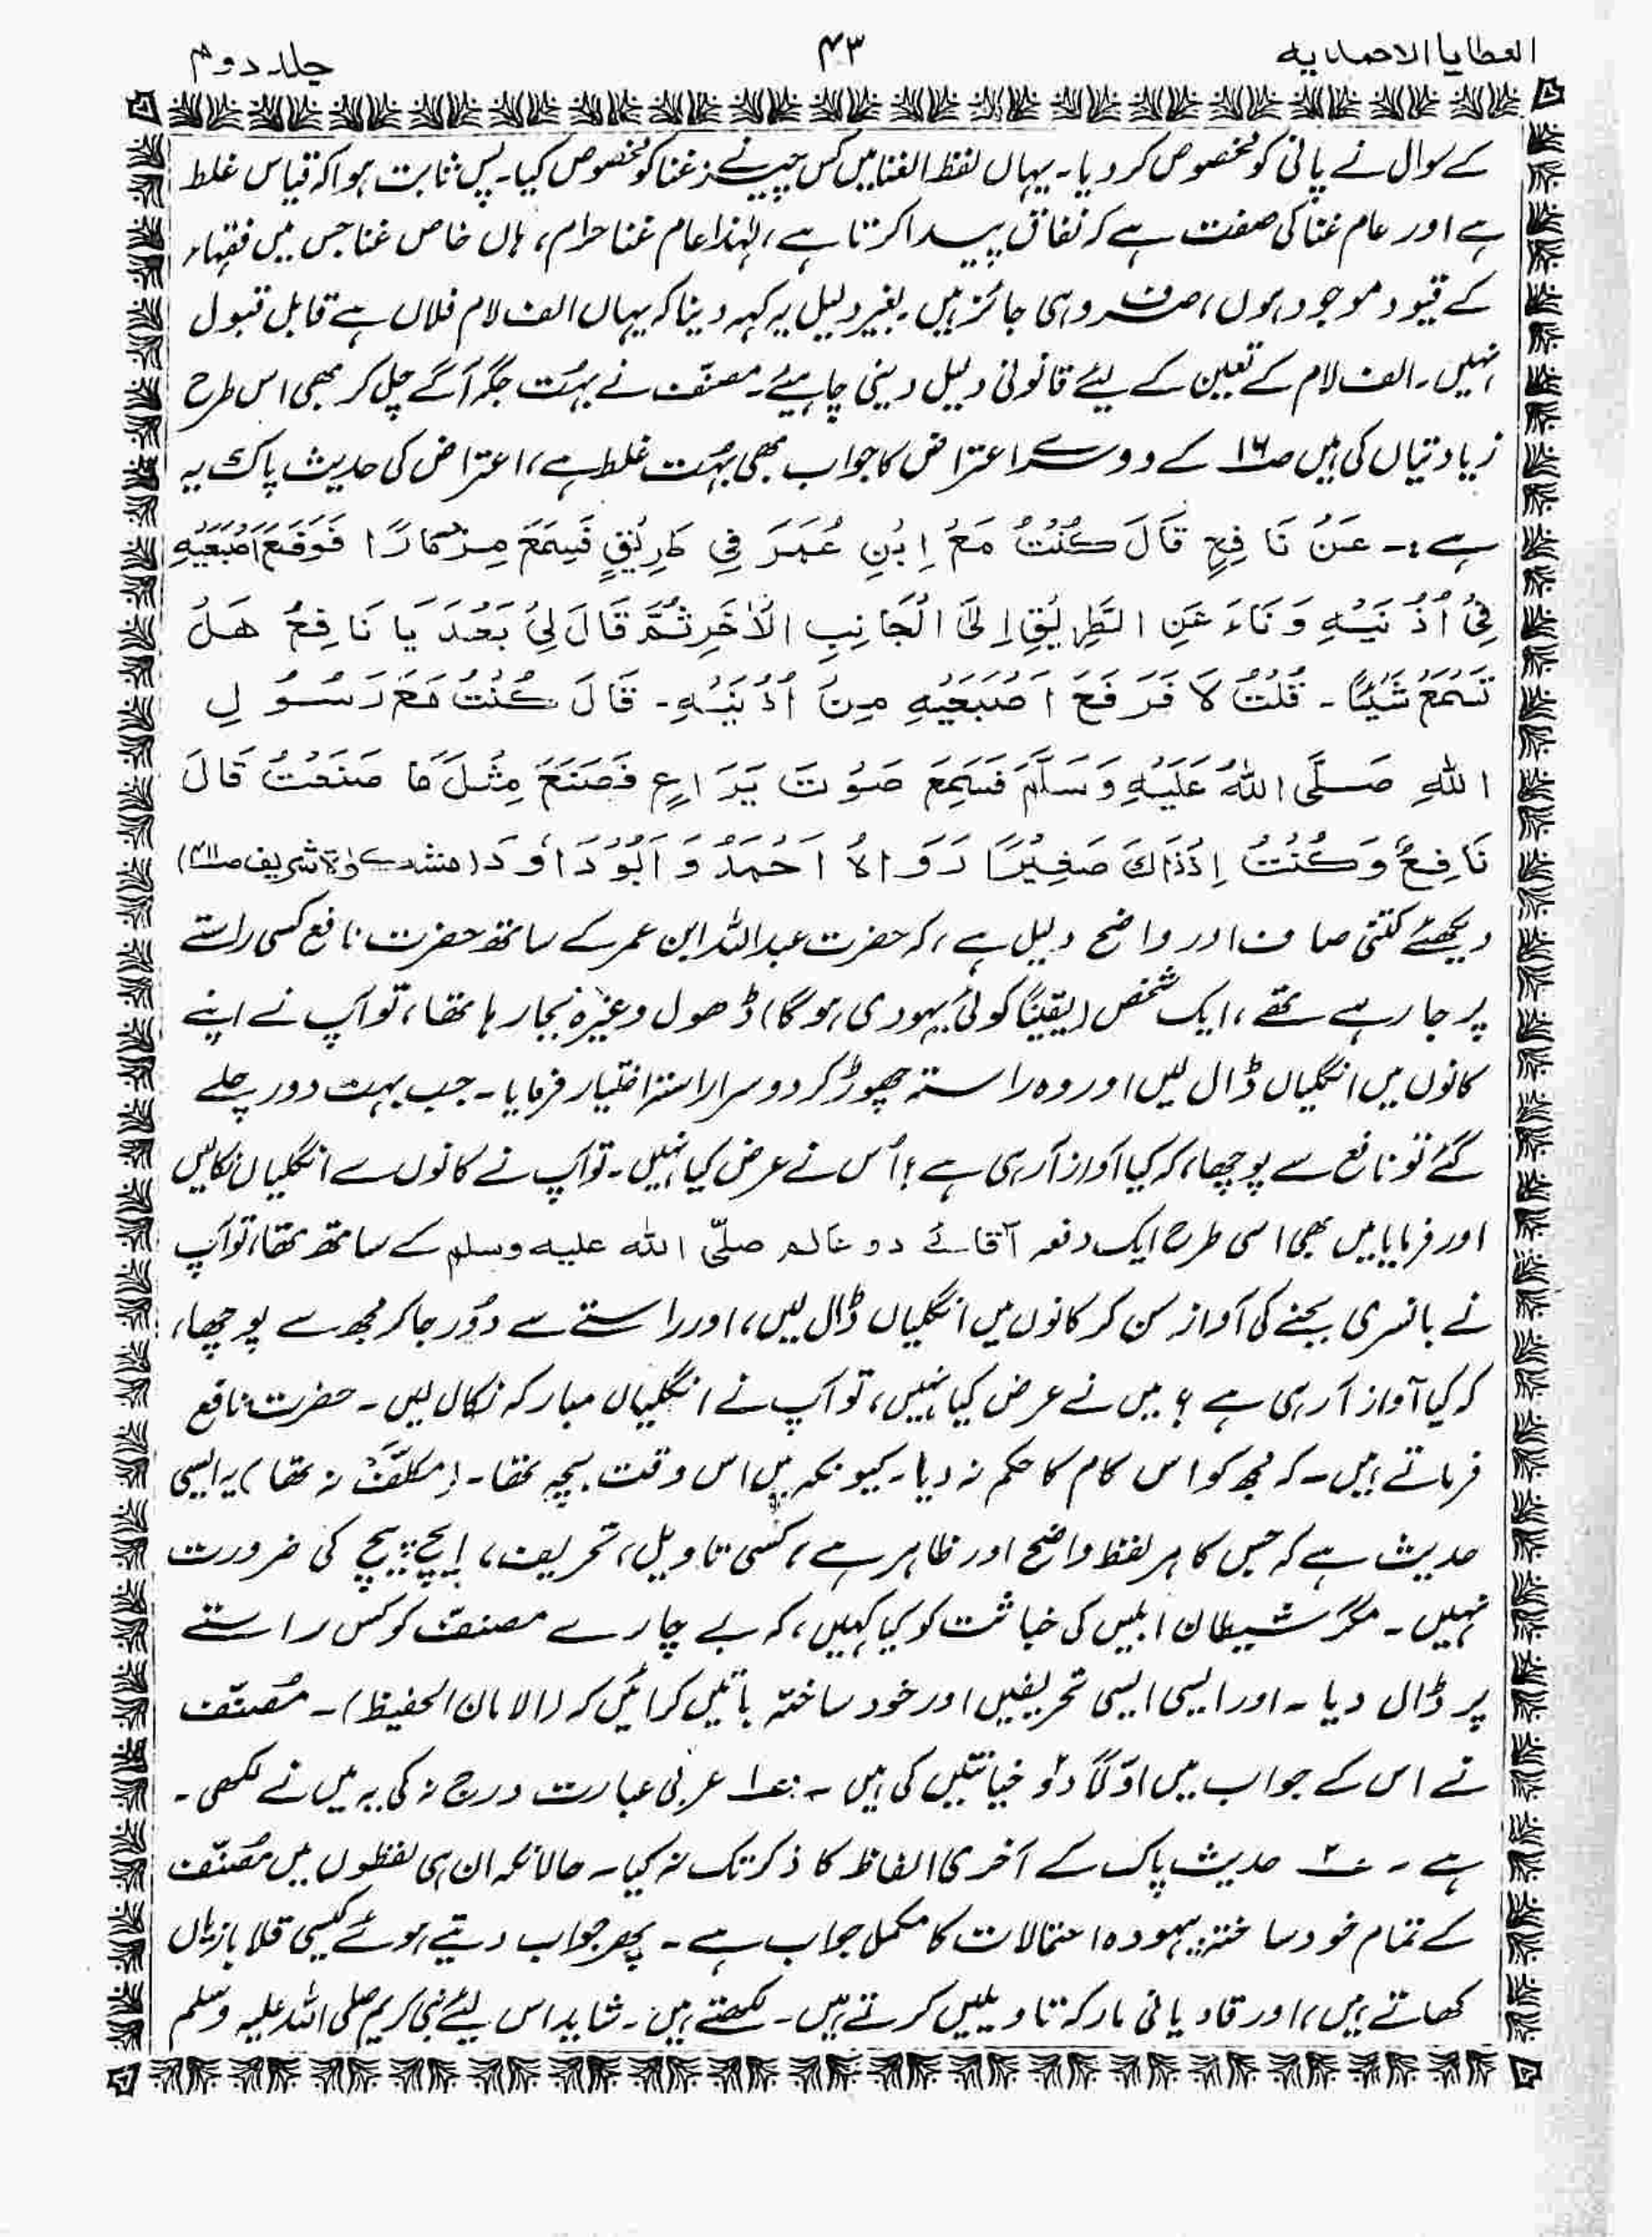 العطایا الاحمدیه
۴۳
جلد دوم
کے سوال نے پانی کو مخصوص کر دیا۔ یہاں لفظ الغنا میں کس چیز نے غنا کو مخصوص کیا۔ پس ثابت ہوا کہ قیاس غلط
ہے اور عام غنا کی صفت ہے کہ نفاق پیدا کرتا ہے، لہٰذا عام غنا حرام، ہاں خاص غنا جس میں فقہاء
کے قیود موجود ہوں، صرف وہی جائز ہیں۔ بغیر دلیل یہ کہہ دینا کہ یہاں الف لام فلاں ہے قابل قبول
نہیں۔ الف لام کے تعین کے لیئے قانونی دلیل دینی چاہیئے۔ مصنّف نے بہت جگہ آگے چل کر بھی اس طرح
زیادتیاں کی ہیں صـ۱۶ کے دوسرے اعتراض کا جواب بھی بہت غلط ہے، اعتراض کی حدیث پاک یہ
ہے:۔ عَنْ نَافِعٍ قَالَ كُنْتُ مَعَ اِبْنِ عُمَرَ فِي طَرِيْقٍ فَسِمَعَ مِزْمَارًا فَوَضَعَ اَصْبَعَيْهِ
فِيْ اُذْنَيْهِ وَنَاءَ عَنِ الطَّرِيْقِ اِلَى الْجَانِبِ الْاٰخَرِ ثُمَّ قَالَ لِيْ بَعْدَ يَا نَافِعُ هَلْ
تَسْمَعُ شَيْئًا۔ قُلْتُ لَا فَرَفَعَ اَصْبَعَيْهِ مِنْ اُذْنَيْهِ۔ قَالَ كُنْتُ مَعَ رَسُوْلِ
اللهِ صَلَّى اللهُ عَلَيْهِ وَسَلَّمَ فَسَمِعَ صَوْتَ يَرَاعٍ فَصَنَعَ مِثْلَ مَا صَنَعْتُ قَالَ
نَافِعٌ وَكُنْتُ اِذْذَاكَ صَغِيْرًا رَوَاهُ اَحْمَدُ وَ اَبُوْدَاوُدَ (مشکوٰۃ شریف صـ۴۱۱)
دیکھئے کتنی صاف اور واضح دلیل ہے، کہ حضرت عبداللہ ابن عمر کے ساتھ حضرت نافع کسی راستے
پر جا رہے تھے، ایک شخص (یقیناً کوئی یہودی ہوگا) ڈھول وغیرہ بجا رہا تھا، تو آپ نے اپنے
کانوں میں انگلیاں ڈال لیں اور وہ راستہ چھوڑ کر دوسرا راستہ اختیار فرمایا۔ جب بہت دور چلے
گئے تو نافع سے پوچھا، کہ کیا آواز آرہی ہے؟ اُس نے عرض کیا نہیں۔ تو آپ نے کانوں سے انگلیاں نکالیں
اور فرمایا میں بھی اسی طرح ایک دفعہ آقائے دو عالم صلّی اللہ علیہ وسلم کے ساتھ تھا، تو آپ
نے بانسری بجنے کی آواز سن کر کانوں میں انگلیاں ڈال لیں، اور راستے سے دُور جا کر مجھ سے پوچھا،
کہ کیا آواز آرہی ہے؟ میں نے عرض کیا نہیں، تو آپ نے انگلیاں مبارکہ نکال لیں۔ حضرت نافع
فرماتے ہیں۔ کہ مجھ کو اس کام کا حکم نہ دیا۔ کیونکہ میں اس وقت بچہ تھا۔ (مکلّف نہ تھا) یہ ایسی
حدیث ہے کہ جس کا ہر لفظ واضح اور ظاہر ہے، کسی تاویل، تحریف، ایچ پیچ کی ضرورت
نہیں۔ مگر شیطان ابلیس کی خباثت کو کیا کہیں، کہ بے چارے مصنف کو کس راستے
پر ڈال دیا۔ اور ایسی ایسی تحریفیں اور خود ساختہ باتیں کرائیں کہ (الامان الحفیظ)۔ مُصنّف
نے اس کے جواب میں اوّلاً دو خیانتیں کی ہیں۔ ؀۱ عربی عبارت درج نہ کی یہ میں نے لکھی۔
ہے۔ ؀۲ حدیث پاک کے آخری الفاظ کا ذکر تک نہ کیا۔ حالانکہ ان ہی لفظوں میں مُصنّف
کے تمام خود ساختہ بیہودہ احتمالات کا مکمل جواب ہے۔ پھر جواب دیتے ہوئے کیسی قلابازیاں
کھاتے ہیں، اور قادیانی مارکہ تاویلیں کرتے ہیں۔ لکھتے ہیں۔ شاید اس لیئے نبی کریم صلی اللہ علیہ وسلم